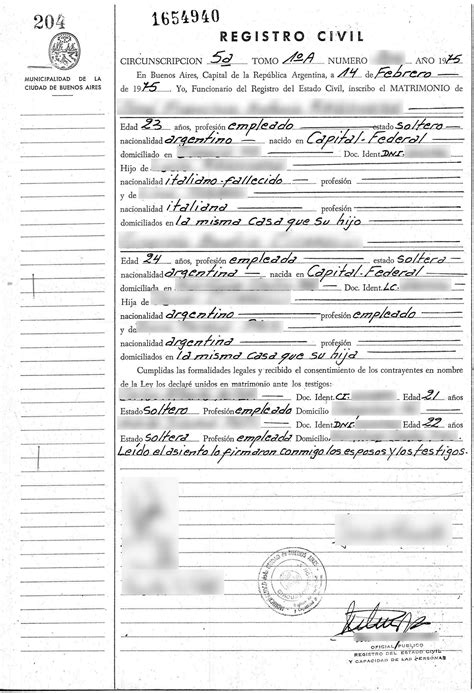 204
1654940
MUNICIPALIDAD DE LA
CIUDAD DE BUENOS AIRES
REGISTRO CIVIL
CIRCUNSCRIPCION 5ª TOMO 1ºA NUMERO AÑO 1975
En Buenos Aires, Capital de la República Argentina, a 14 de Febrero
de 1975 Yo, Funcionario del Registro del Estado Civil, inscribo el MATRIMONIO de
Edad 23 años, profesión empleado estado soltero
nacionalidad argentino nacido en Capital-Federal
domiciliado en Doc. Ident. DNI.
Hijo de
nacionalidad italiano-fallecido profesión
y de
nacionalidad italiana profesión
domiciliados en la misma casa que su hijo
Edad 24 años, profesión empleada estado soltera
nacionalidad argentina nacida en Capital-Federal
domiciliada en Doc. Ident. LC.
Hija de
nacionalidad argentino profesión empleado
y de
nacionalidad argentina profesión
domiciliados en la misma casa que su hija
Cumplidas las formalidades legales y recibido el consentimiento de los contrayentes en nombre
de la Ley los declaré unidos en matrimonio ante los testigos:
Doc. Ident. CI. Edad 21 años
Estado soltero Profesión empleado Domicilio
Doc. Ident. DNI. Edad 22 años
Estado soltera Profesión empleada Domicilio
Leído el asiento lo firmaron conmigo los esposos y los testigos.
OFICIAL PUBLICO
REGISTRO DEL ESTADO CIVIL
Y CAPACIDAD DE LAS PERSONAS